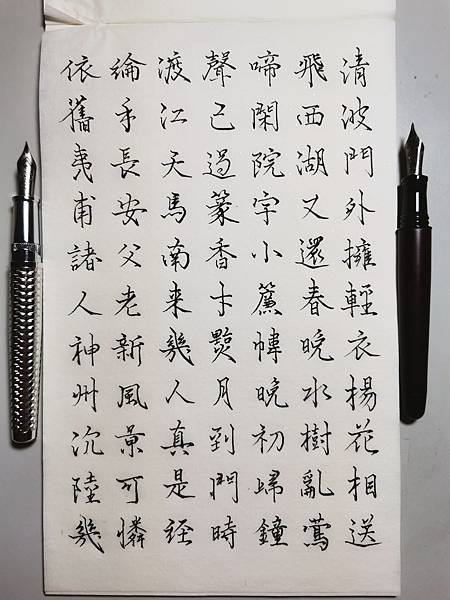 清波門外擁輕衣楊花相送
飛西湖又還春晚水樹亂鶯
啼閑院宇小簾幃晚初歸鐘
聲已過篆香才點月到門時
渡江天馬南来幾人真是經
綸手長安父老新風景可憐
依舊夷甫諸人神州沉陸幾